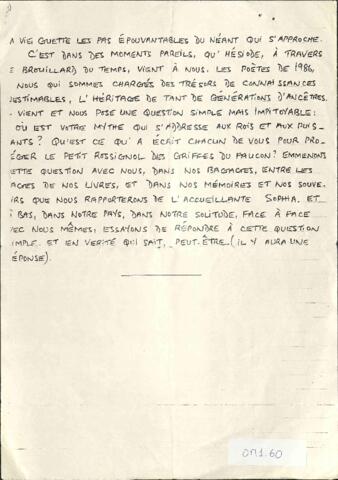 A VIE GUETTE LES PAS ÉPOUVANTABLES DU NÉANT QUI S'APPROCHE.
C'EST DANS DES MOMENTS PAREILS, QU'HÉSIODE, À TRAVERS
E BROUILLARD DU TEMPS, VIENT À NOUS. LES POÈTES DE 1986,
NOUS QUI SOMMES CHARGÉS DES TRÉSORS DE CONNAISSANCES
NESTIMABLES, L'HÉRITAGE DE TANT DE GÉNÉRATIONS D'ANCÊTRES.
VIENT ET NOUS POSE UNE QUESTION SIMPLE MAIS IMPITOYABLE:
OÙ EST VOTRE MYTHE QUI S'ADDRESSE AUX ROIS ET AUX PUIS-
ANTS? QU'EST CE QU'A ÉCRIT CHACUN DE VOUS POUR PRO-
ÉGER LE PETIT ROSSIGNOL DES GRIFFES DU FAUCON? EMMENONS
ETTE QUESTION AVEC NOUS, DANS NOS BAGAGES, ENTRE LES
AGES DE NOS LIVRES, ET DANS NOS MÉMOIRES ET NOS SOUVE-
IRS QUE NOUS RAPPORTERONS DE L'ACCUEILLANTE SOPHIA. ET
À BAS, DANS NOTRE PAYS, DANS NOTRE SOLITUDE, FACE À FACE
VEC NOUS MÊMES, ESSAYONS DE RÉPONDRE À CETTE QUESTION
IMPLE. ET EN VERITÉ QUI SAIT, PEUT-ÊTRE (IL Y AURA UNE
ÉPONSE).
OM1.60